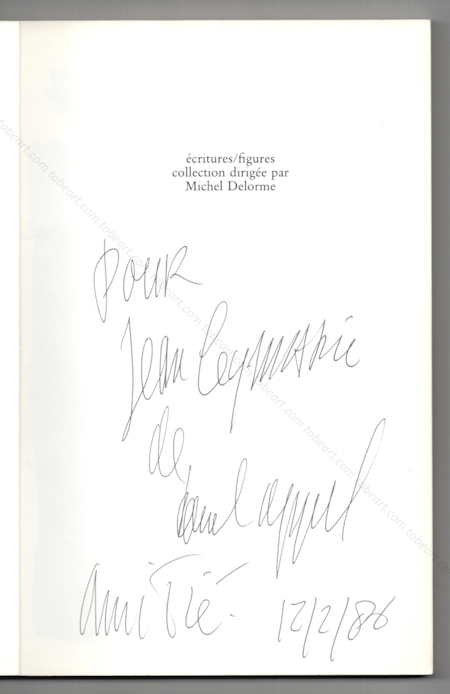 écritures/figures
collection dirigée par
Michel Delorme
pour
Jean Leymarie
de
Karel appel
amitié.
12/2/86
tobeart.com tobeart.com tobeart.com tobeart.com tobeart.com tobeart.com